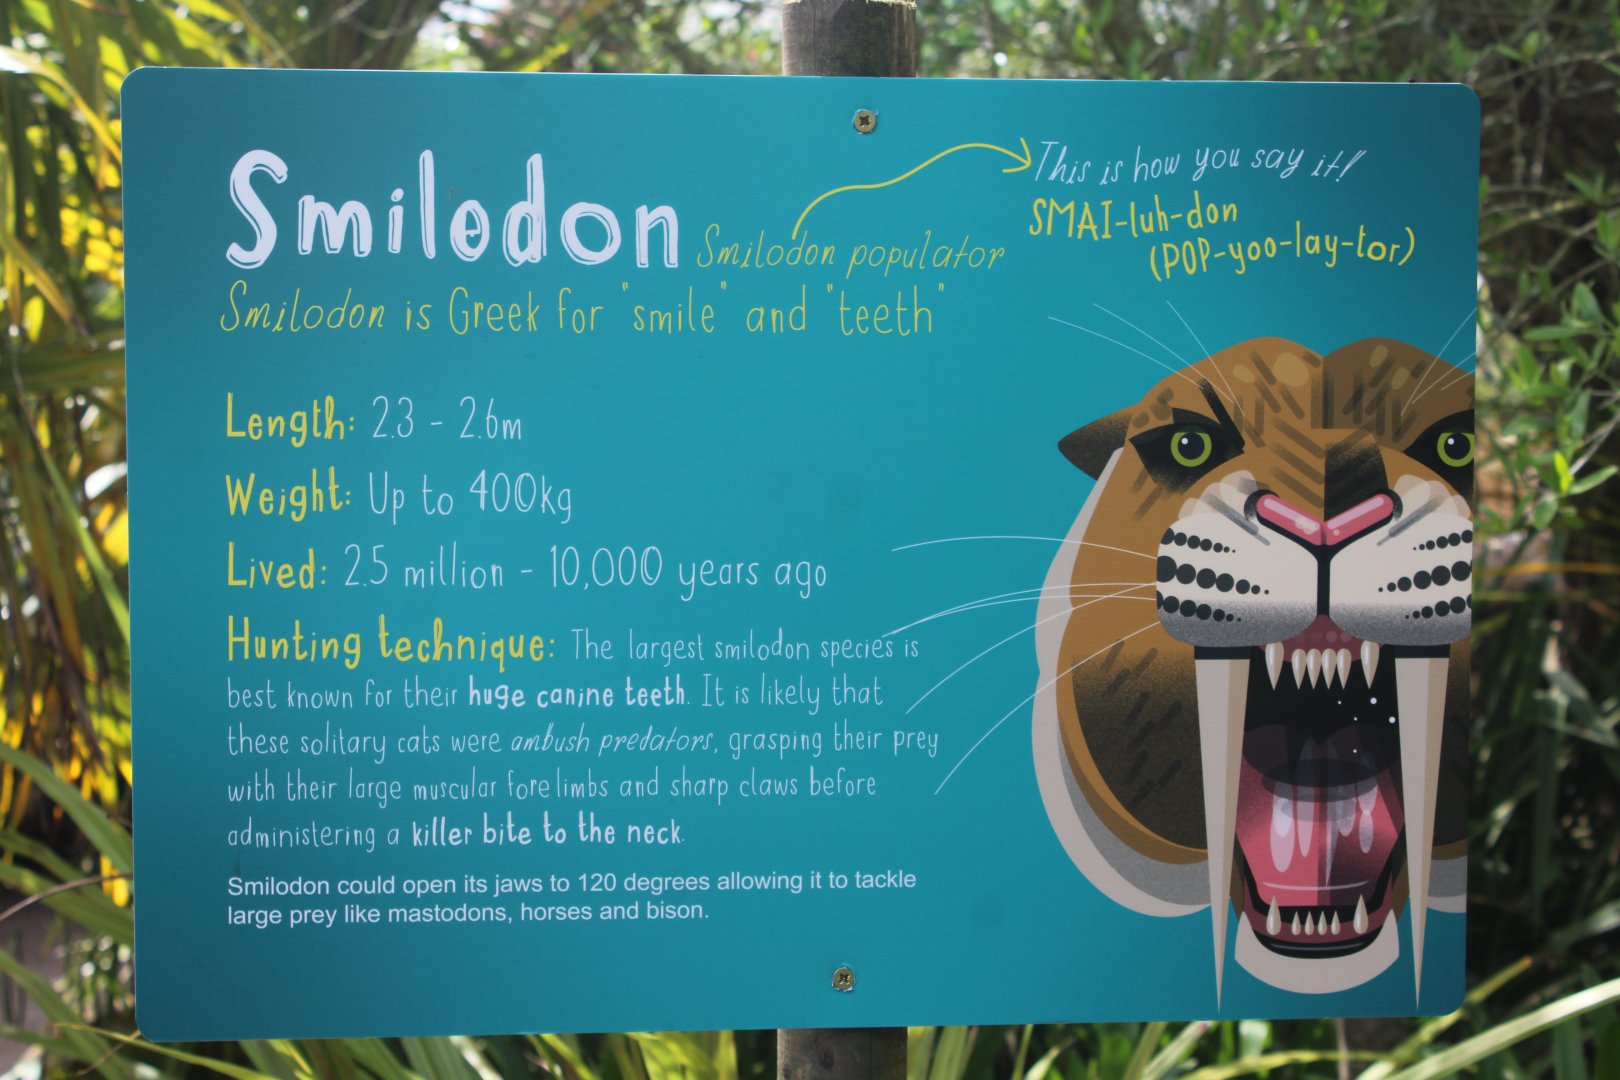 Smilodon Smilodon populator
This is how you say it!
SMAI-luh-don
(POP-yoo-lay-tor)
Smilodon is Greek for "smile" and "teeth"
Length: 2.3 - 2.6m
Weight: Up to 400kg
Lived: 2.5 million - 10,000 years ago
Hunting technique: The largest smilodon species is
best known for their huge canine teeth. It is likely that
these solitary cats were ambush predators, grasping their prey
with their large muscular forelimbs and sharp claws before
administering a killer bite to the neck.
Smilodon could open its jaws to 120 degrees allowing it to tackle
large prey like mastodons, horses and bison.